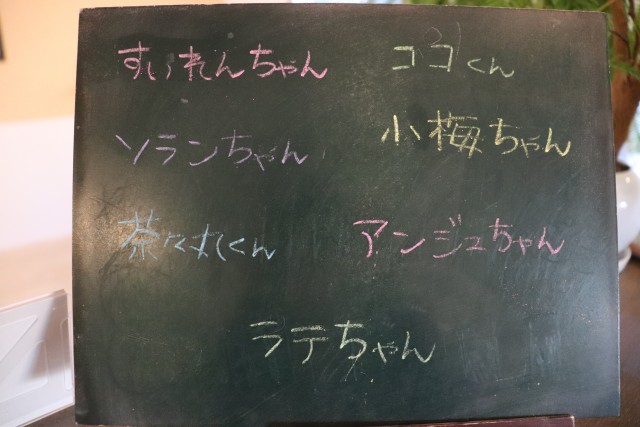 すいれんちゃん
ココくん
ソランちゃん
小梅ちゃん
茶々丸くん
アンジュちゃん
ラテちゃん